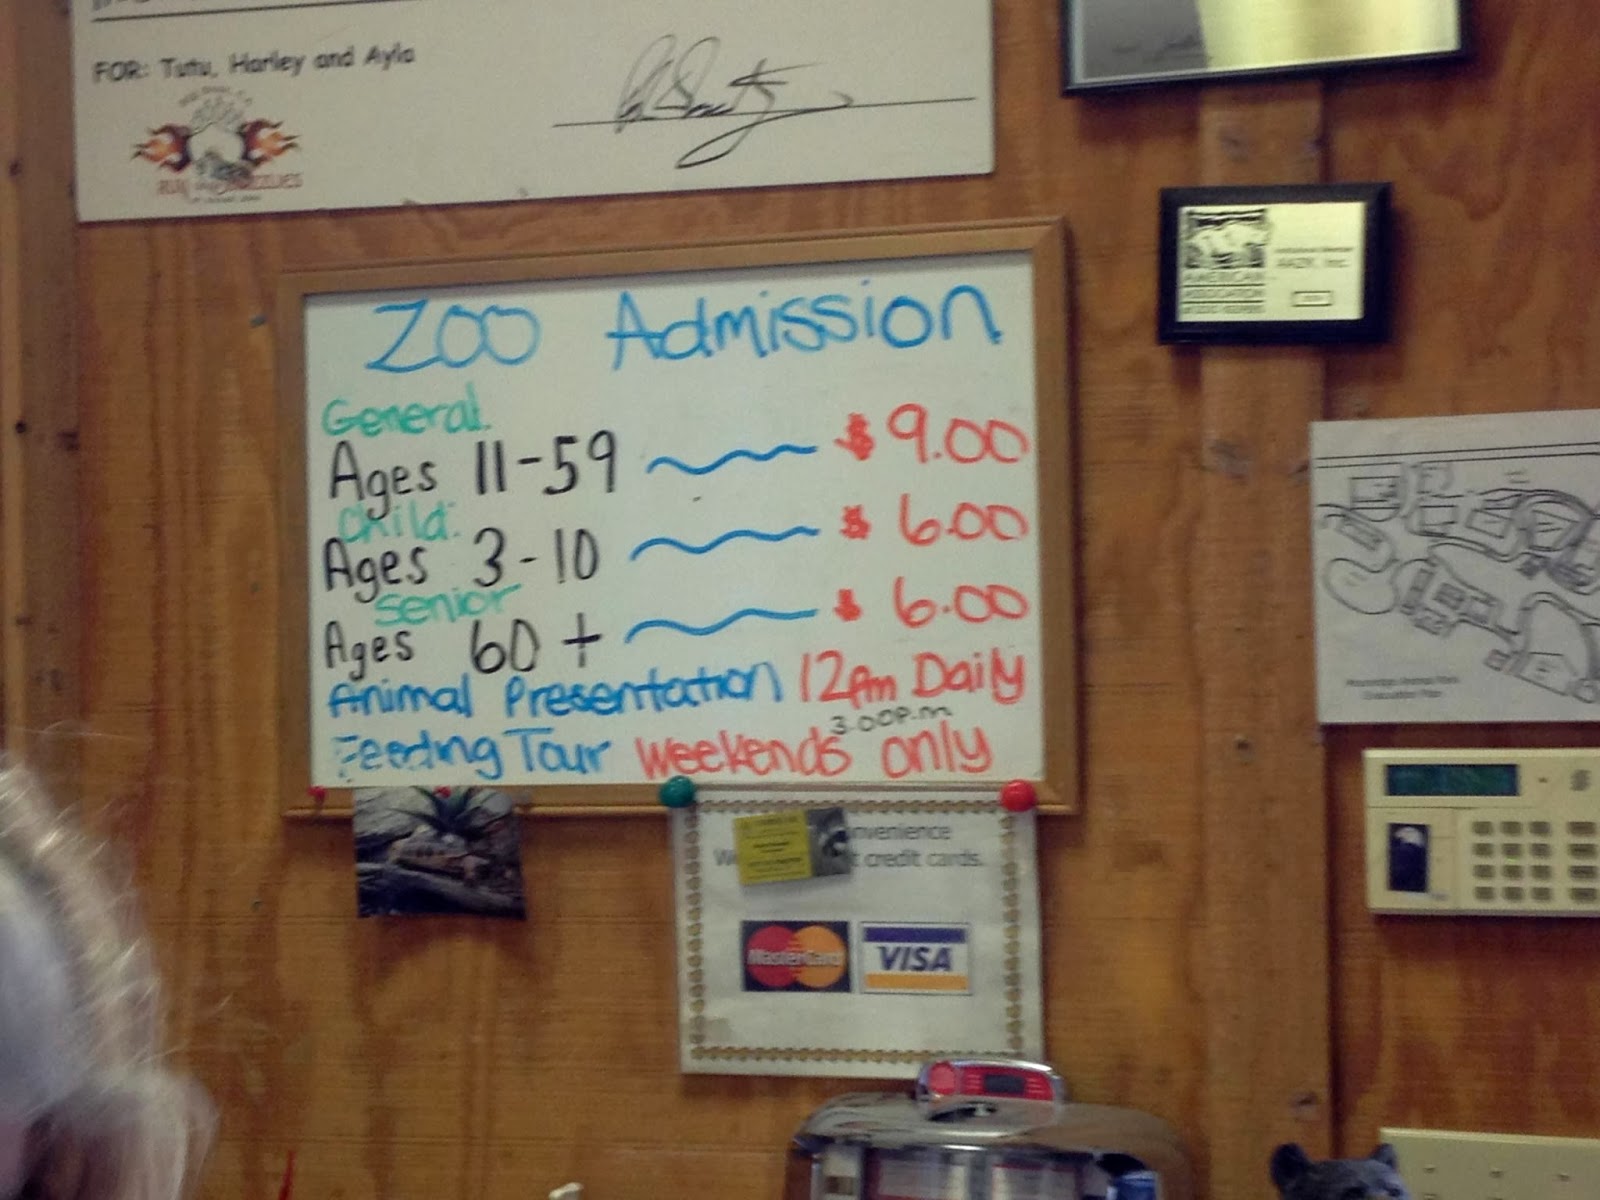 FOR: Tutu, Harley and Ayla
ZOO Admission
General.
Ages 11-59 $ 9.00
Child:
Ages 3-10 $ 6.00
Senior
Ages 60+ $ 6.00
Animal Presentation 12pm Daily
3:00P.m
Feeding Tour Weekends only
AMERICAN
ASSOCIATION
AAZK, Inc.
credit cards.
MasterCard
VISA